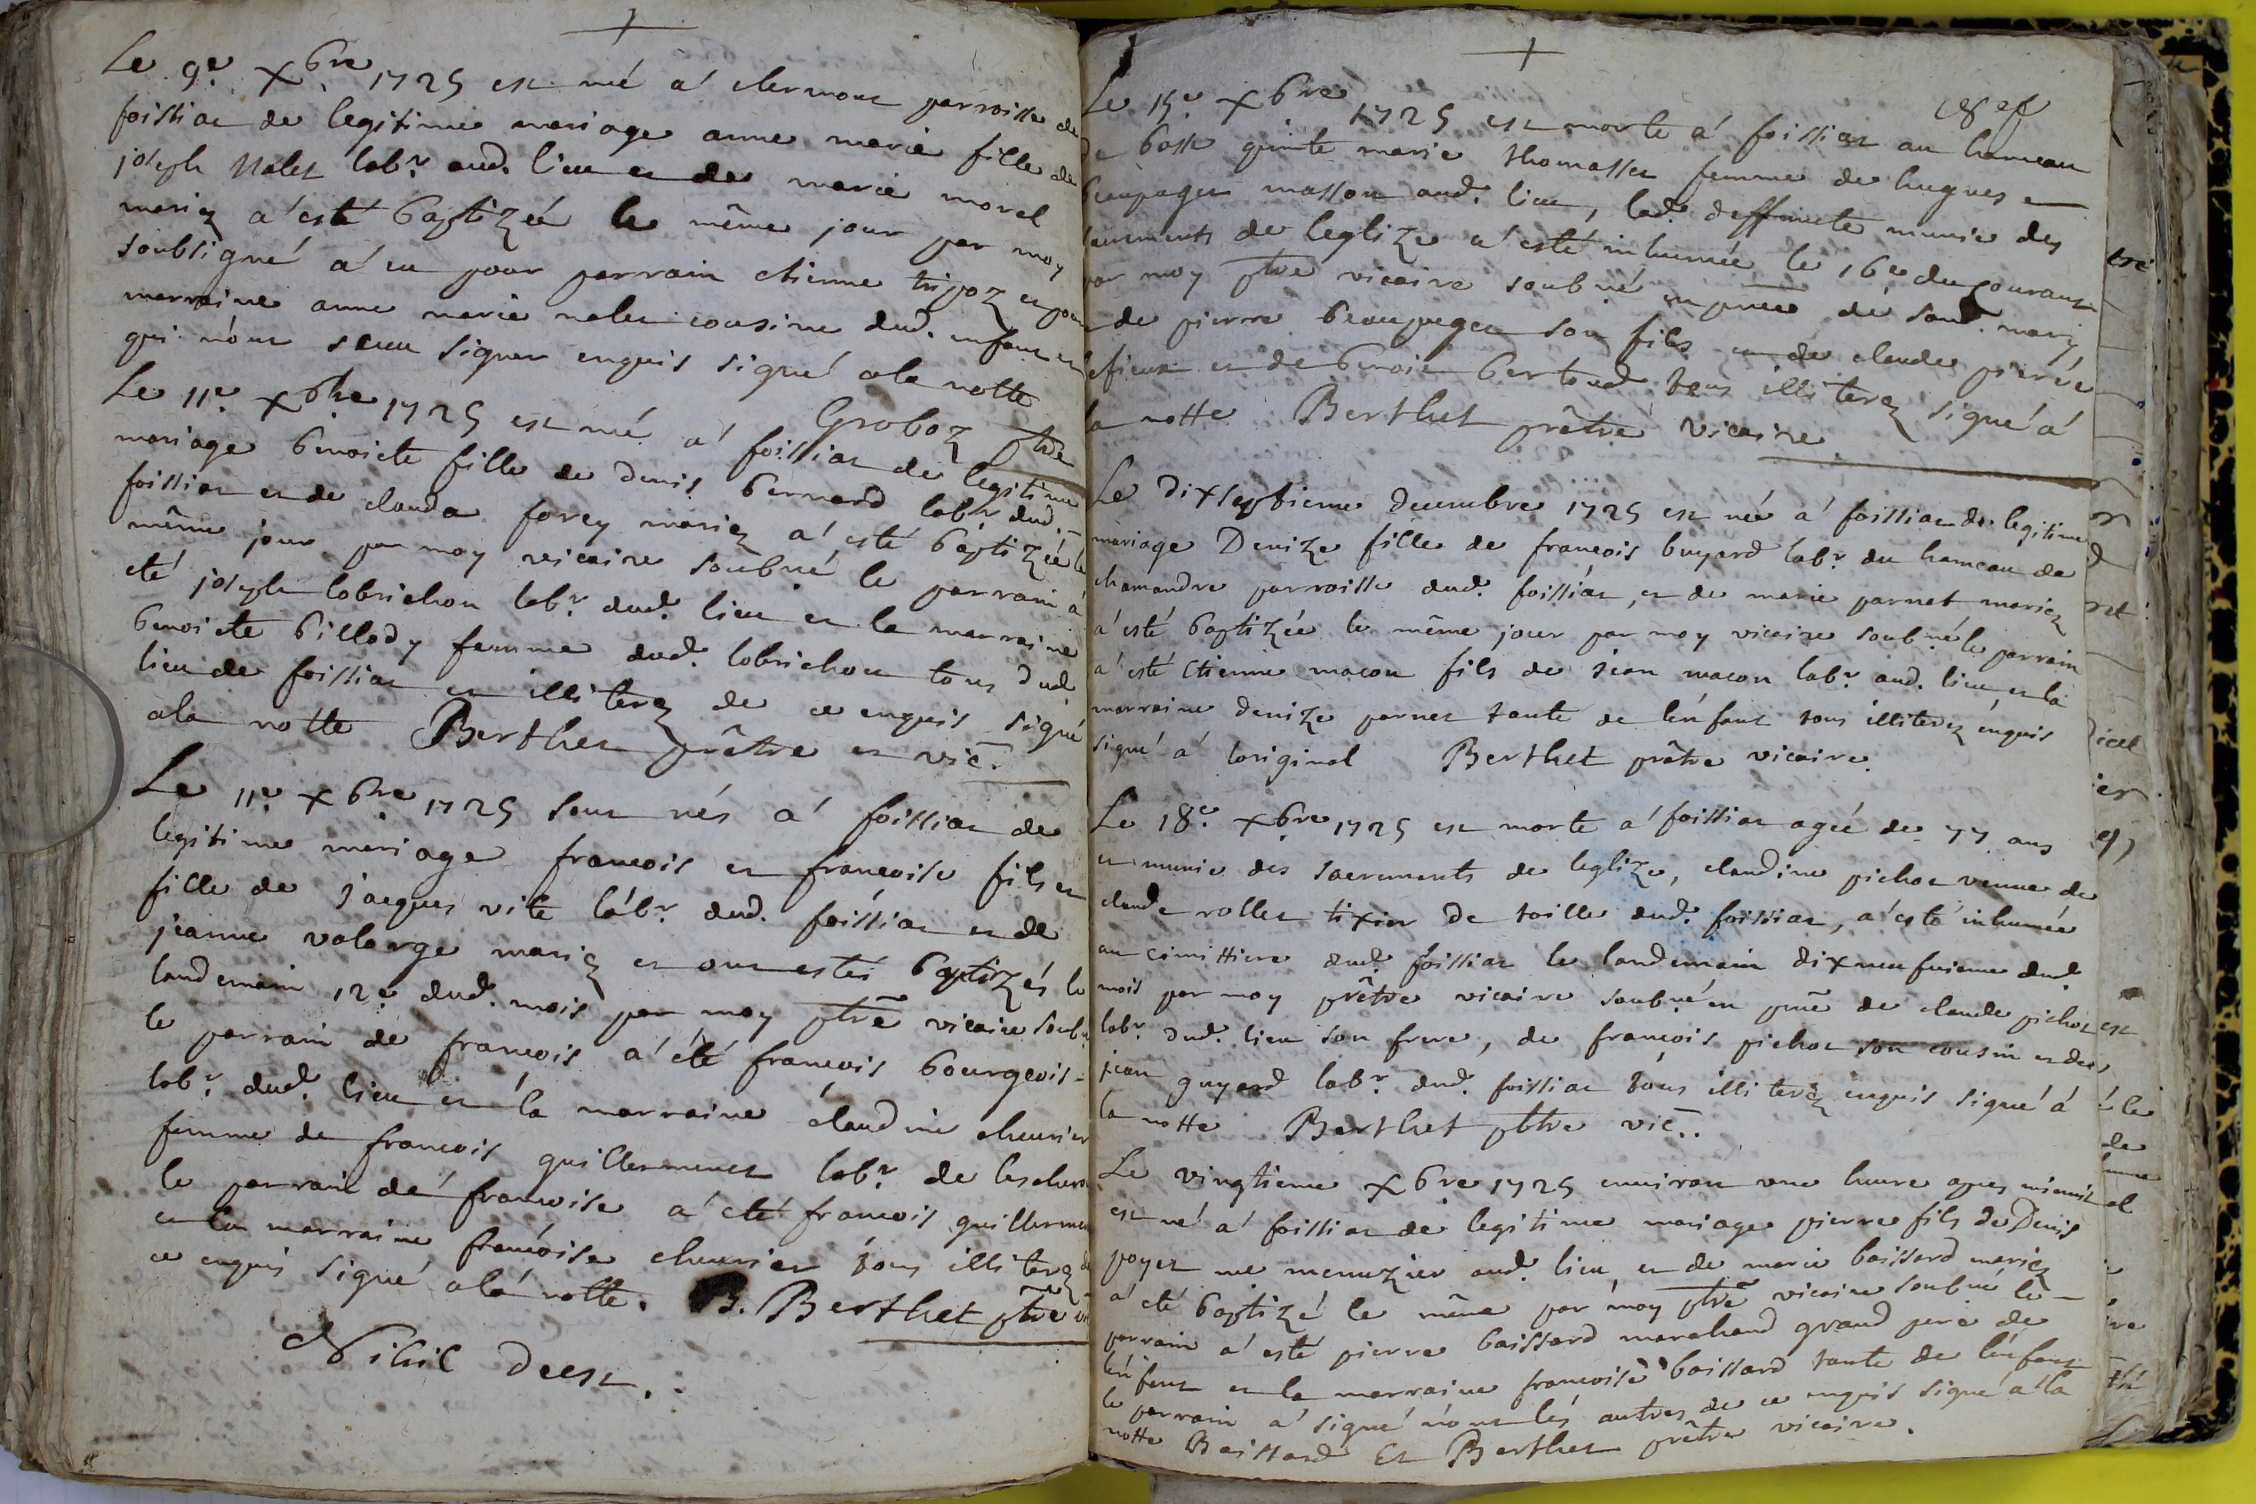 Le 9e. Xbre 1725 est né a' clermont parroisse de
foissiat de legitime mariage anne marie fille de
joseph Nalet labr. aud. lieu et de marie morel
mariez a' esté baptizée le même jour par moy
soubsigné a' eu pour parrain etienne tripoz et pour
marraine anne marie nalet cousine dud. enfant et
qui n'ont sceu signer enquis signé ala notte
Groboz ptre
Le 11e. Xbre 1725 est né a' foissiat de legitime
mariage benoicte fille de denis bernard labr. dud.
foissiat et de clauda forey mariez a' esté baptizée le
même jour par moy vicaire soubné le parrain a'
eté joseph lobrichon labr. dud. lieu et la marraine
benoicte billody femme dud. lobrichon tous dud.
lieu de foissiat et illiterez de ce enquis signé
ala notte Berthet prêtre et vic.
Le 11e. Xbre 1725 sont nés a' foissiat de
legitime mariage francois et francoise fils et
fille de jacques vite labr. dud. foissiat et de
jeanne volarge mariez et ont estés baptizés le
landemain 12e dud. mois par moy ptre vicaire soubné
le parrain de francois a' été francois bourgeois
labr. dud. lieu et la marraine claudine cheurier
femme de francois guillermenet labr. de lescheroux
le parrain de francoise a' eté francois guillermenet
et la marraine francoise cheurier tous illiterez de
ce enquis signé ala notte. B. Berthet ptre vic
Nihil Deest.
Le 15e Xbre 1725 est morte a' foissiat au hameau
de basse quinte marie thomasset femme de hugues
beaupaget masson aud. lieu, lad. deffuncte munie des
sacrements de leglize a' esté inhumée le 16e du courant
par moy ptre vicaire soubné en pnce de soud. mary,
de pierre beaupaget son fils et de claude pierre
et de benoit bertoud tous illiterez signé a'
la notte Berthet prêtre vicaire
Le dixseptieme decembre 1725 est née a' foissiat de legitime
mariage Denize fille de francois buyard labr. du hameau de
chamandre parroisse dud. foissiat, et de marie parnet mariez
a' esté baptizée le même jour par moy vicaire soubné le parrain
a' esté Etienne macon fils de jean macon labr. aud. lieu et la
marraine denize parnet tante de l'enfant tous illiterez enquis
signé a' loriginal Berthet prêtre vicaire.
Le 18e. Xbre 1725 est morte a' foissiat agée de 77 ans
et munie des sacrements de leglize, claudine pichot veuue de
claude rollet tixier de toille dud. foissiat, a' esté inhumée
au cimittiere dud. foissiat le landemain dixneufuieme dud.
mois par moy prêtre vicaire soubné en pnce de claude pichot
labr. dud. lieu son frere, de francois pichot son cousin et de
jean guyard labr. dud. foissiat tous illiterez enquis signé a'
la notte Berthet ptre vic.
Le vingtieme Xbre 1725 enuiron une heure apres minuit
est né a' foissiat de legitime mariage pierre fils de Denis
poyet me menuzier aud. lieu, et de marie baissard mariez
a' eté baptizé le même par moy ptre vicaire soubné le
parrain a' esté pierre baissard marchand grand pere de
l'enfant et la marraine francoise baissard tante de l'enfant
le parrain a' signé n'ont les autres de ce enquis signé a' la
notte Baissard Et Berthet prêtre vicaire.